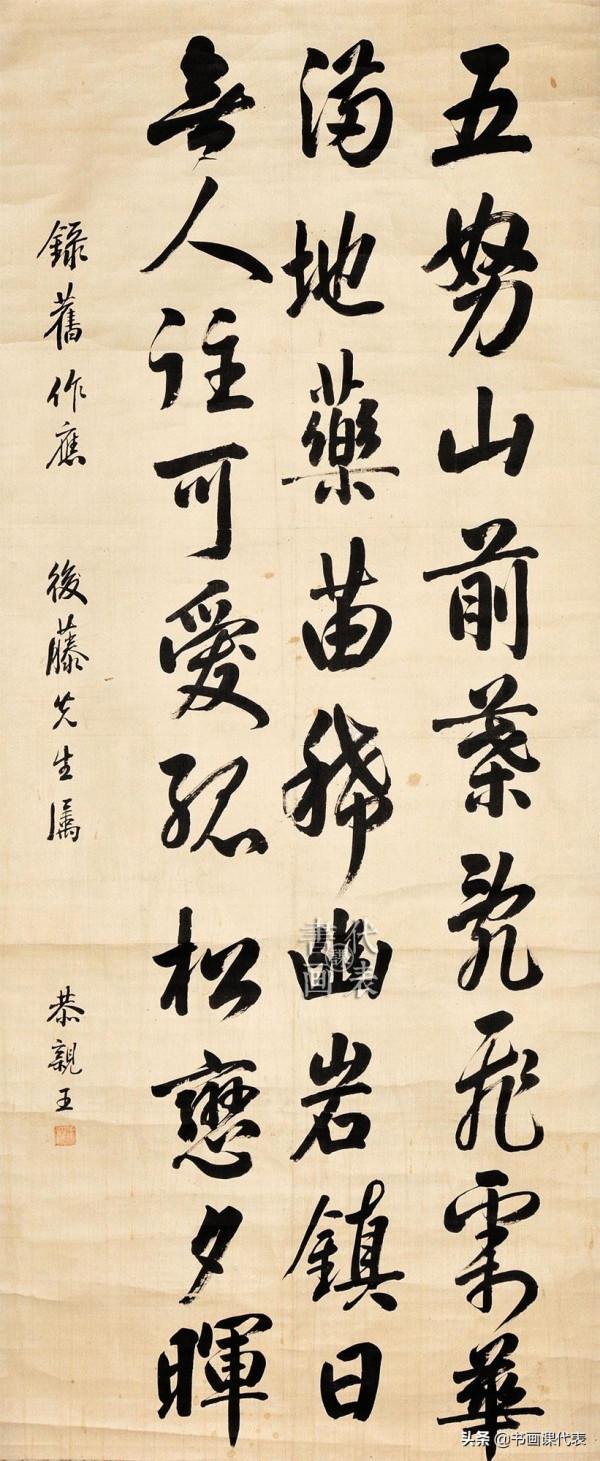 五努山前葉亂飛霜華
滿地藥苗稀幽岩鎮日
無人註可愛孤松戀夕暉
錄舊作應
後藤先生屬
恭親王
書画課代表
头条 @书画课代表